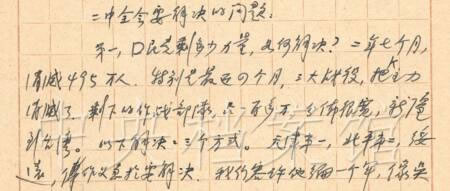 二中全会要解决的问题：
第一，口民党剩多少力量，如何解决？二年七个月，
消减495万人。特别是最近4个月，三大战役，把主力
消减了，剩下的作战部队，只一百多万，分布很宽，新疆
到台湾。以下解决，三个方式。天津第一，北平第二，绥
远，傅作义系于要解决。我们答许他编一个军，